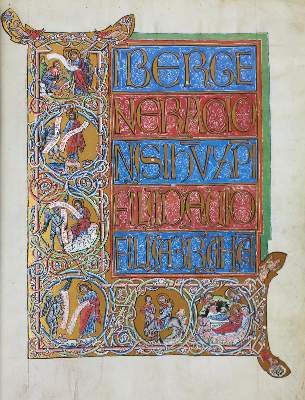 LIBER GE
NERATIO
NIS IHV XPI
FILII DAVID
FILII ABRAHA